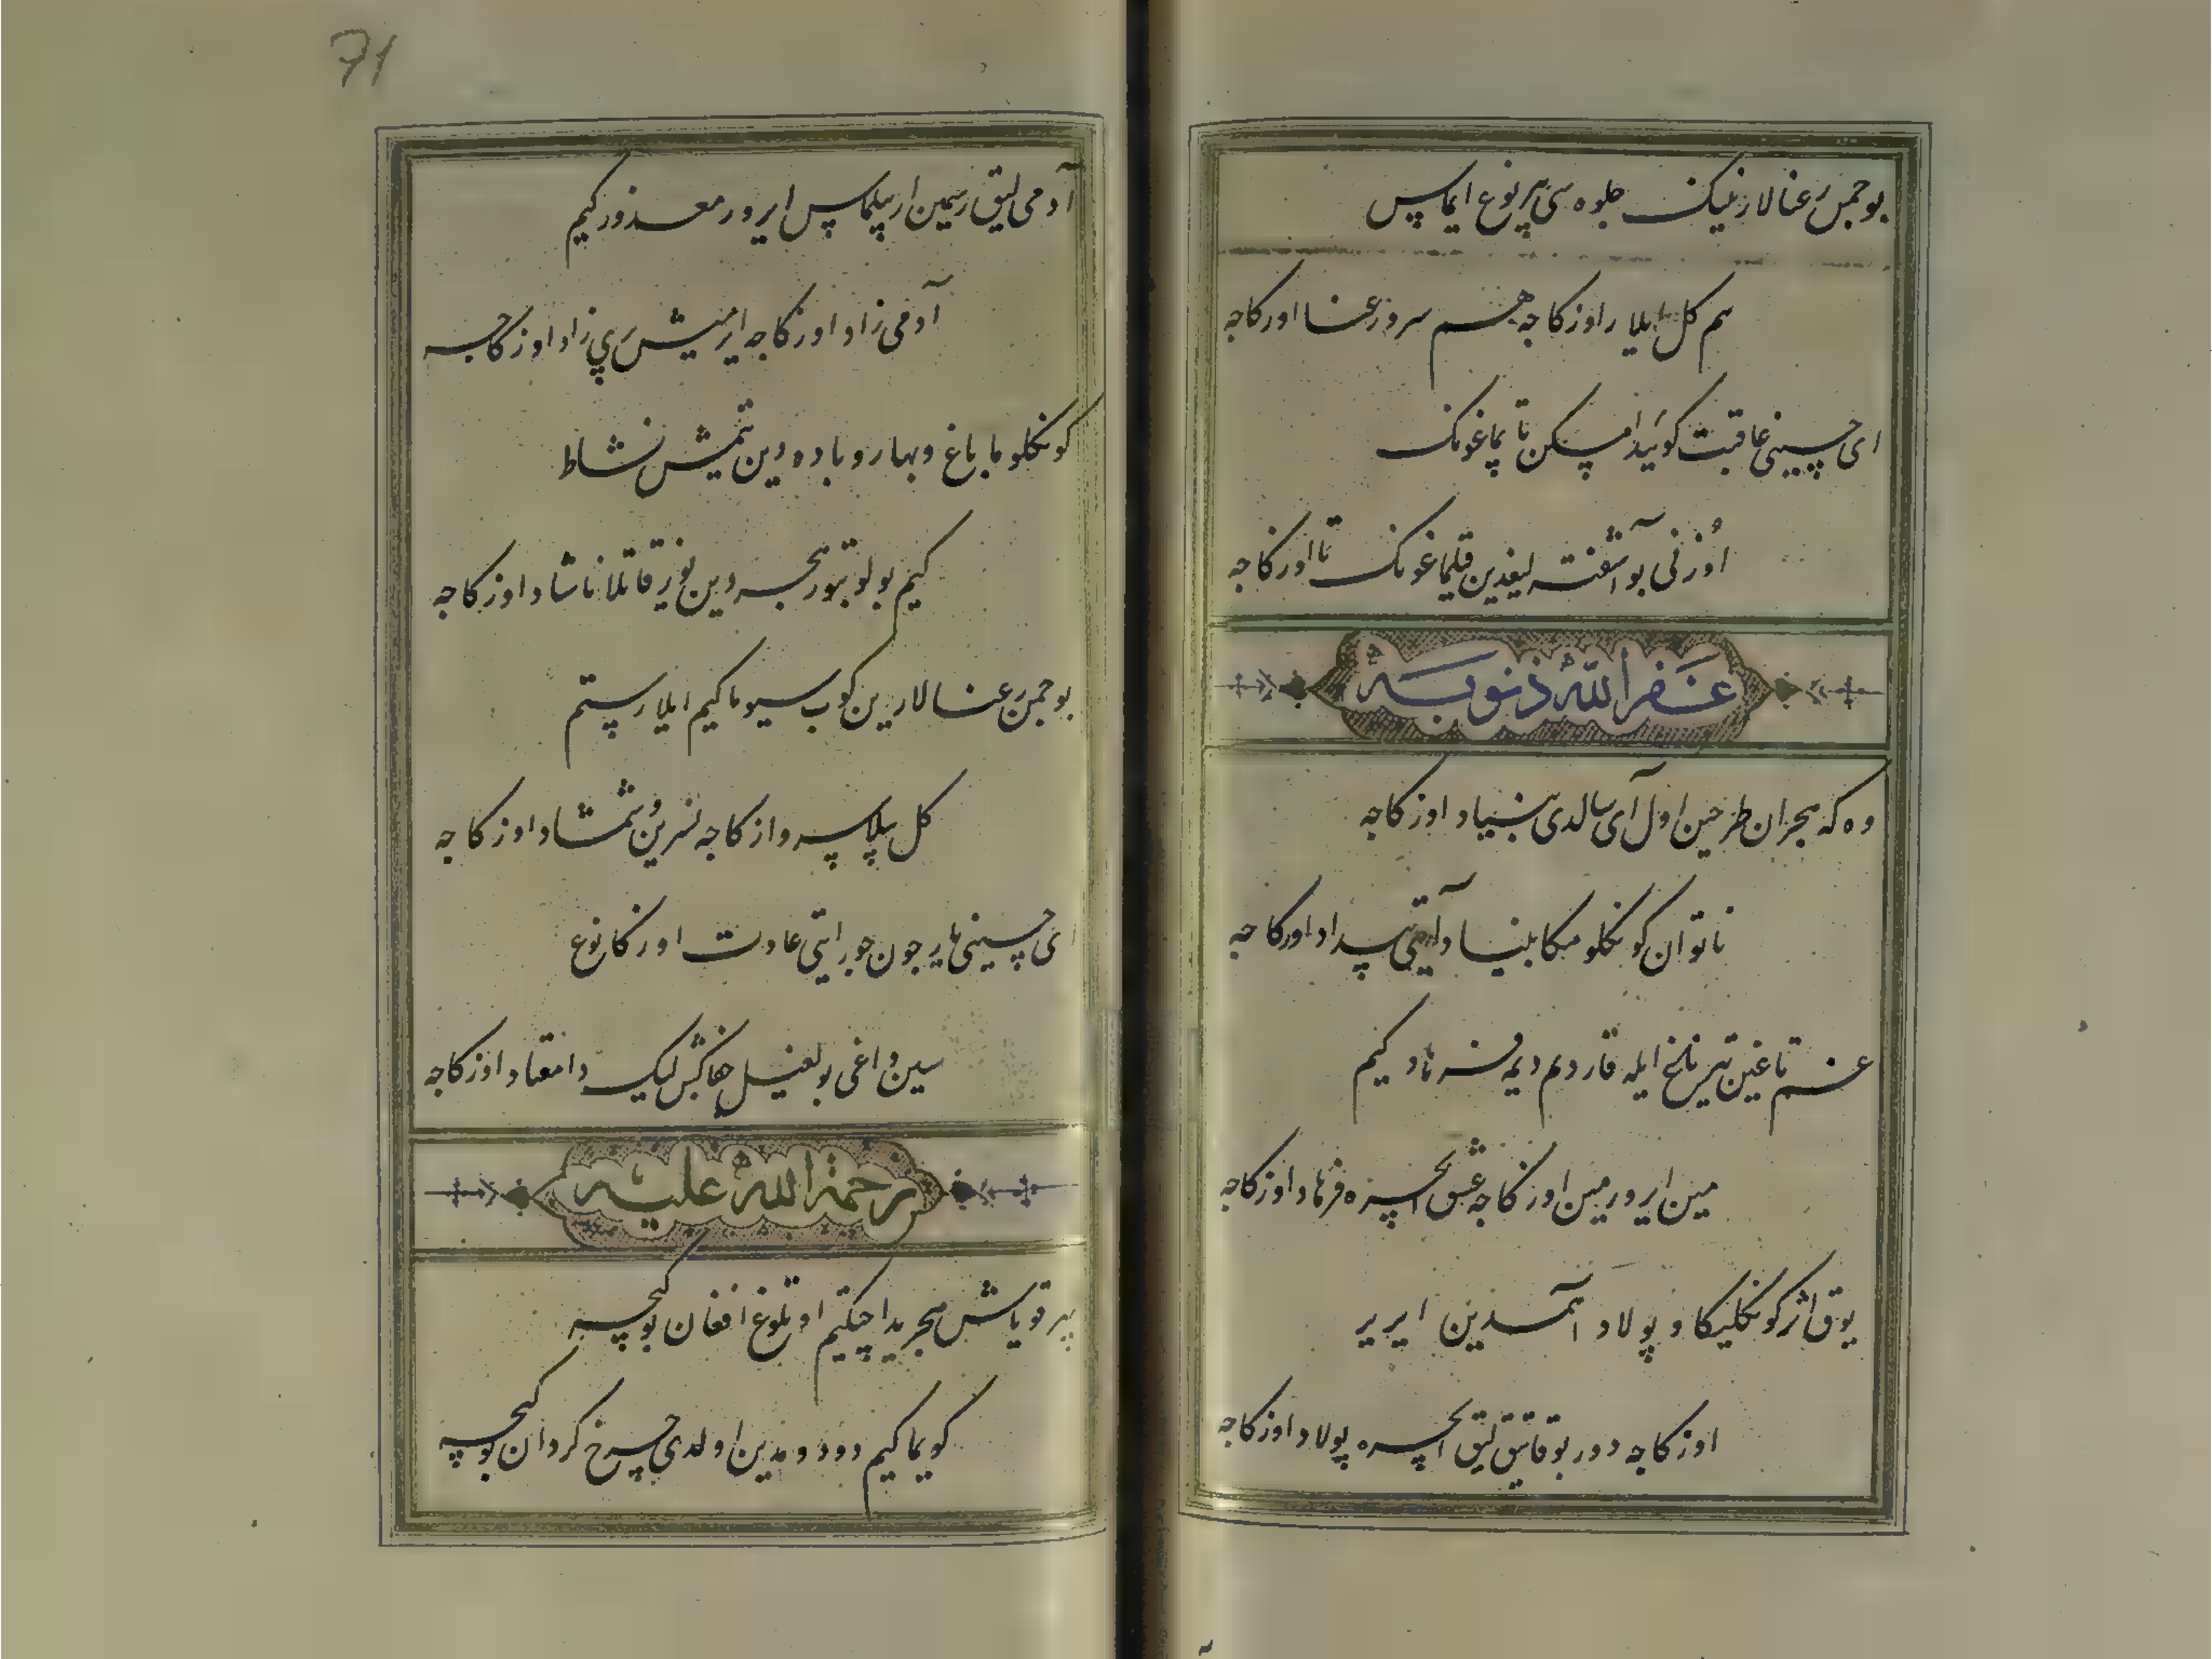 بو چمن رعنالارنینک جلوه سی بیر نوع ایماس
هم گل ایلار اوزکاجه هم سرو رعنا اوزکاجه
ای حسینی عاقبت کویید امسکن تابماغونک
اوزنی بو آشفته لیغدین قیلماغونک تا اوزکاجه
غفر الله ذنوبه
وه که هجران طرحین اول آی سالدی بنیاد اوزکاجه
ناتوان کونکلومکا بنیاد ایتی بیداد اوزکاجه
غم تاغین تیرناغ ایله قازدم دیمه فرهاد کیم
مین ایرورمین اوزکاجه عشق ایچره فرهاد اوزکاجه
یوق اثر کونکلینکا و پولاد آهمدین ایریر
اوزکاجه دور بو قاتیق لیق ایچره پولاد اوزکاجه
71
آدمی لیق رسمین ار بیلماس ایرور معذور کیم
آدمی زاد اوزکاجه ایرمیش پری زاد اوزکاجه
کونکلوما باغ و بهار و باده دین یتمیش نشاط
کیم بولوبتور هجردین یوز قاتلا ناشاد اوزکاجه
بو چمن رعنالارین کوب سیوما کیم ایلار ستم
گل بیلا سرو ازکاجه نسرین و شمشاد اوزکاجه
ای حسینی یار چون جور ایتی عادت اوزکا نوع
سین داغی بولغیل جفاکش لیک دا معتاد اوزکاجه
رحمة الله علیه
بیر قویاش هجریدا چیکتیم اوتلوغ افغان بو کیچه
کوییا کیم دود و مدین اولدی چرخ گردان بو کیچه